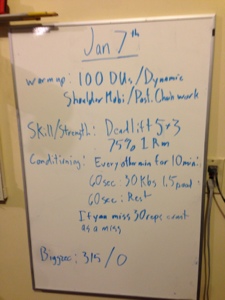 Jan 7th
warmup: 100 DUs/Dynamic
Shoulder Mobi/Post. Chain work
Skill/Strength: Deadlift 5x3
75% 1Rm
Conditioning: Every other min for 10min:
60sec: 30 Kbs 1.5 pood
60sec: Rest
If you miss 30 reps count
as a miss
315/0